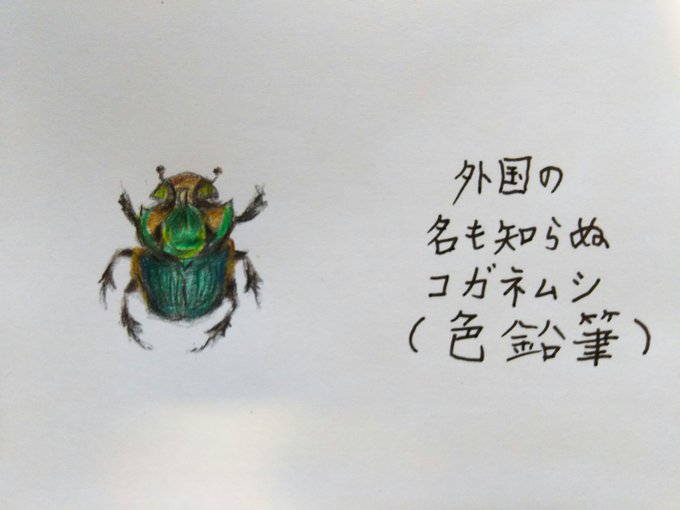 外国の
名も知らぬ
コガネムシ
(色鉛筆)